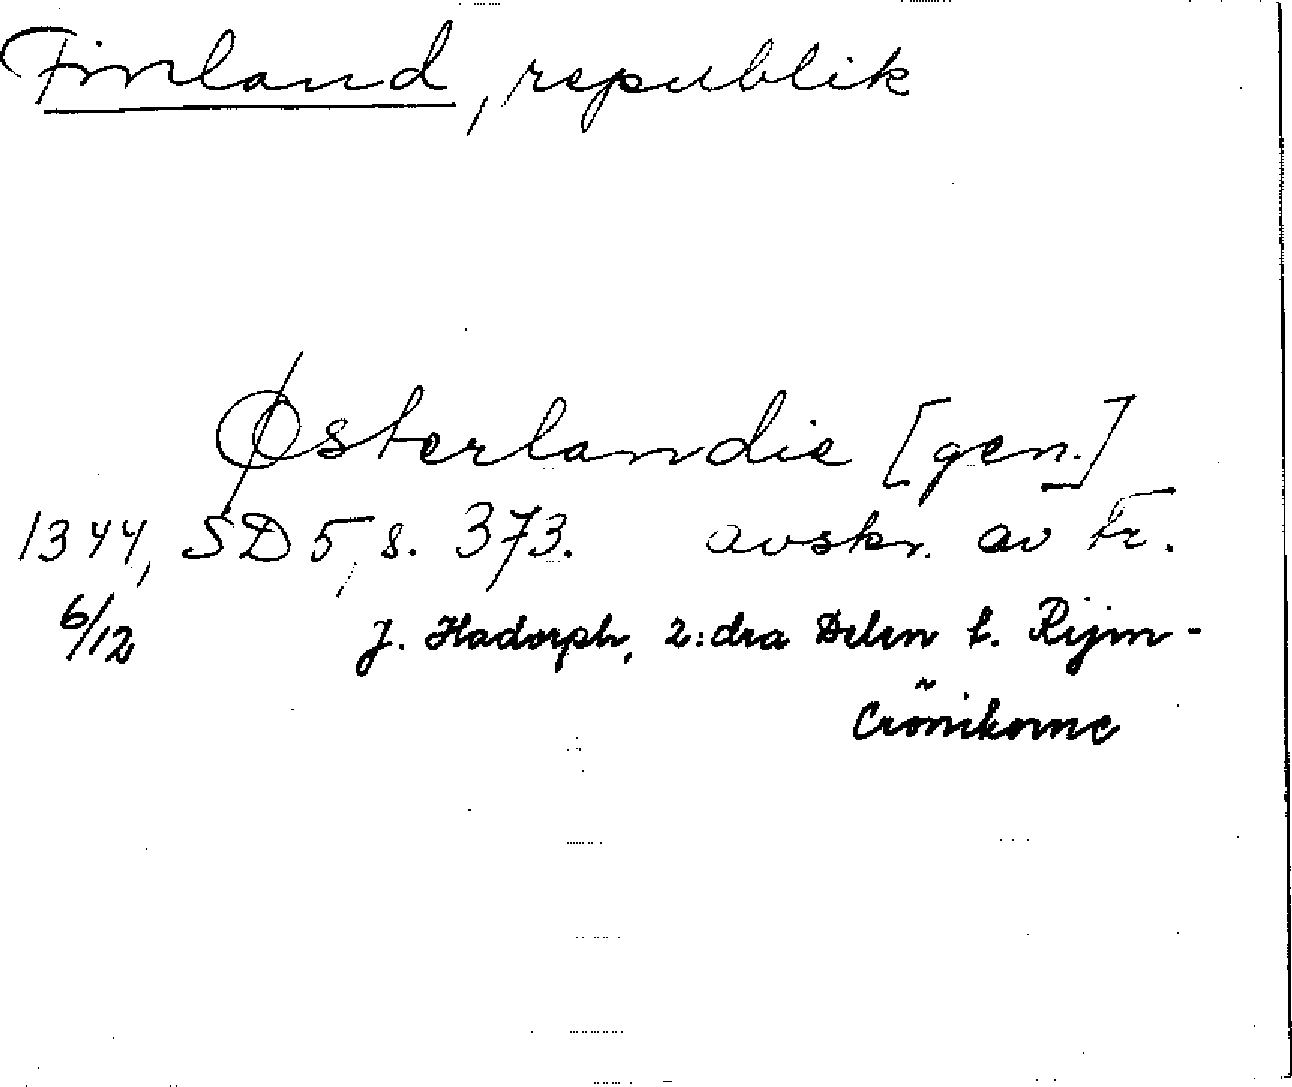 Finland, republik
Østerlandie [gen.]
1344, SD 5, s. 373. avskr. av Fr.
6/12 J. Hadorph, 2:dra Delen t. Rijm-
Crönikorne